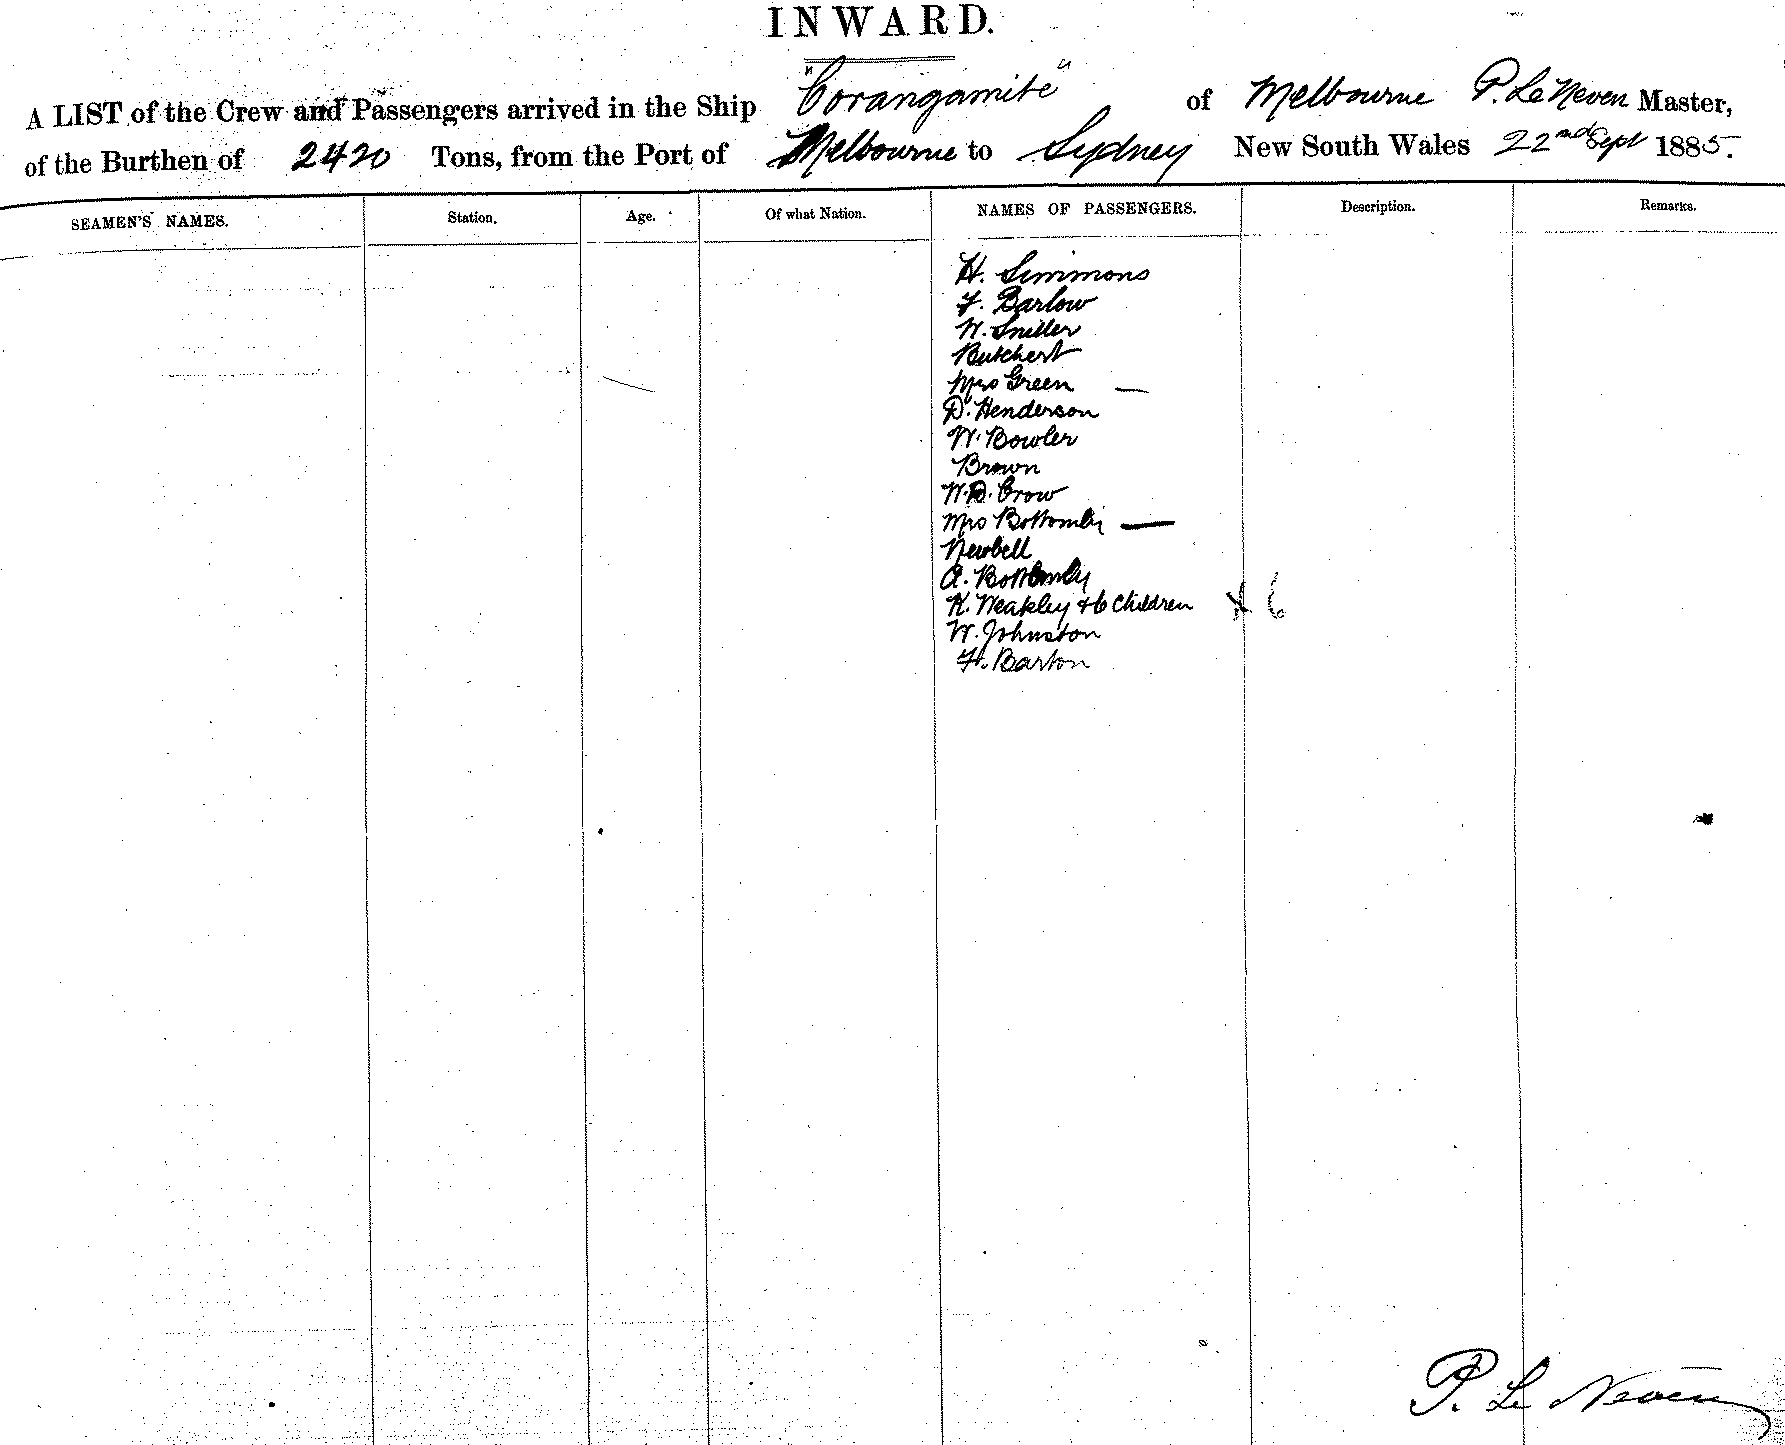 INWARD.
A LIST of the Crew and Passengers arrived in the Ship "Corangamite" of Melbourne P. Le Neven Master,
of the Burthen of 2420 Tons, from the Port of Melbourne to Sydney New South Wales 22nd Sept 1885.
SEAMEN'S NAMES. Station. Age. Of what Nation. NAMES OF PASSENGERS. Description. Remarks.
H. Simmons
F. Barlow
W. Sniller
Butchert
Mrs Green —
D. Henderson
W. Bowler
Brown
W.D. Crow
Mrs Bottomly —
Newbell
A. Bottomly
K. Weakley & 6 Children X 6
W. Johnston
H. Barton
P. Le Neven